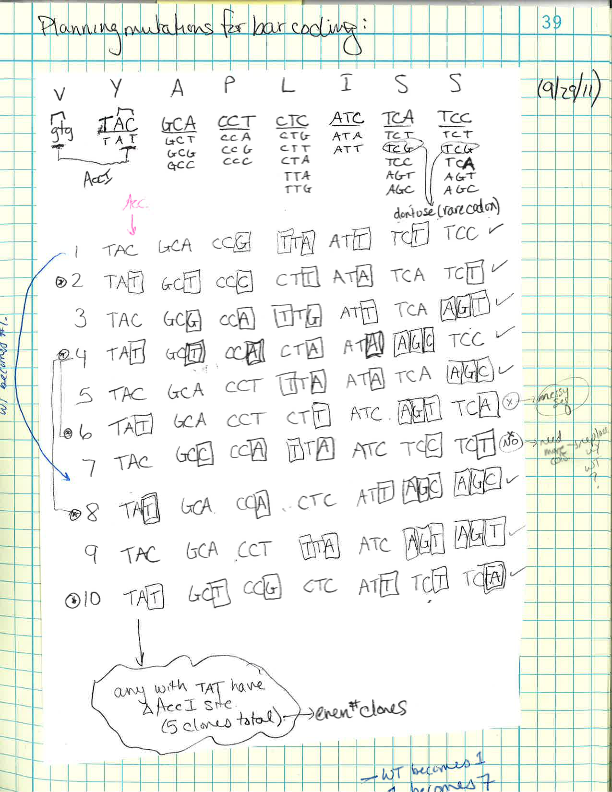 Planning mutations for barcoding:
39
(9/29/11)
V Y A P L I S S
gtg TAC GCA CCT CTC ATC TCA TCC
TAT GCT CCA CTG ATA TCT TCT
GCG CCG CTT ATT TCG TCG
GCC CCC CTA TCC TCA
TTA AGT AGT
TTG AGC AGC
AccI
don't use (rare codon)
Acc.
1 TAC GCA CCG TTA ATT TCT TCC ✓
2 TAT GCT CCC CTT ATA TCA TCT ✓
3 TAC GCG CCA TTG ATT TCA AGT ✓
4 TAT GCT CCA CTA ATA AGC TCC ✓
5 TAC GCA CCT TTA ATA TCA AGC ✓
6 TAT GCA CCT CTT ATC AGT TCA x messy seq
7 TAC GCC CCA TTA ATC TCC TCT NO need more
8 TAT GCA CCA CTC ATT AGC AGC ✓
9 TAC GCA CCT TTA ATC AGT AGT ✓
10 TAT GCT CCG CTC ATT TCT TCA ✓
WT becomes #1.
any with TAT have
Δ AccI site
(5 clones total) → even # clones
- WT becomes 1
becomes 7